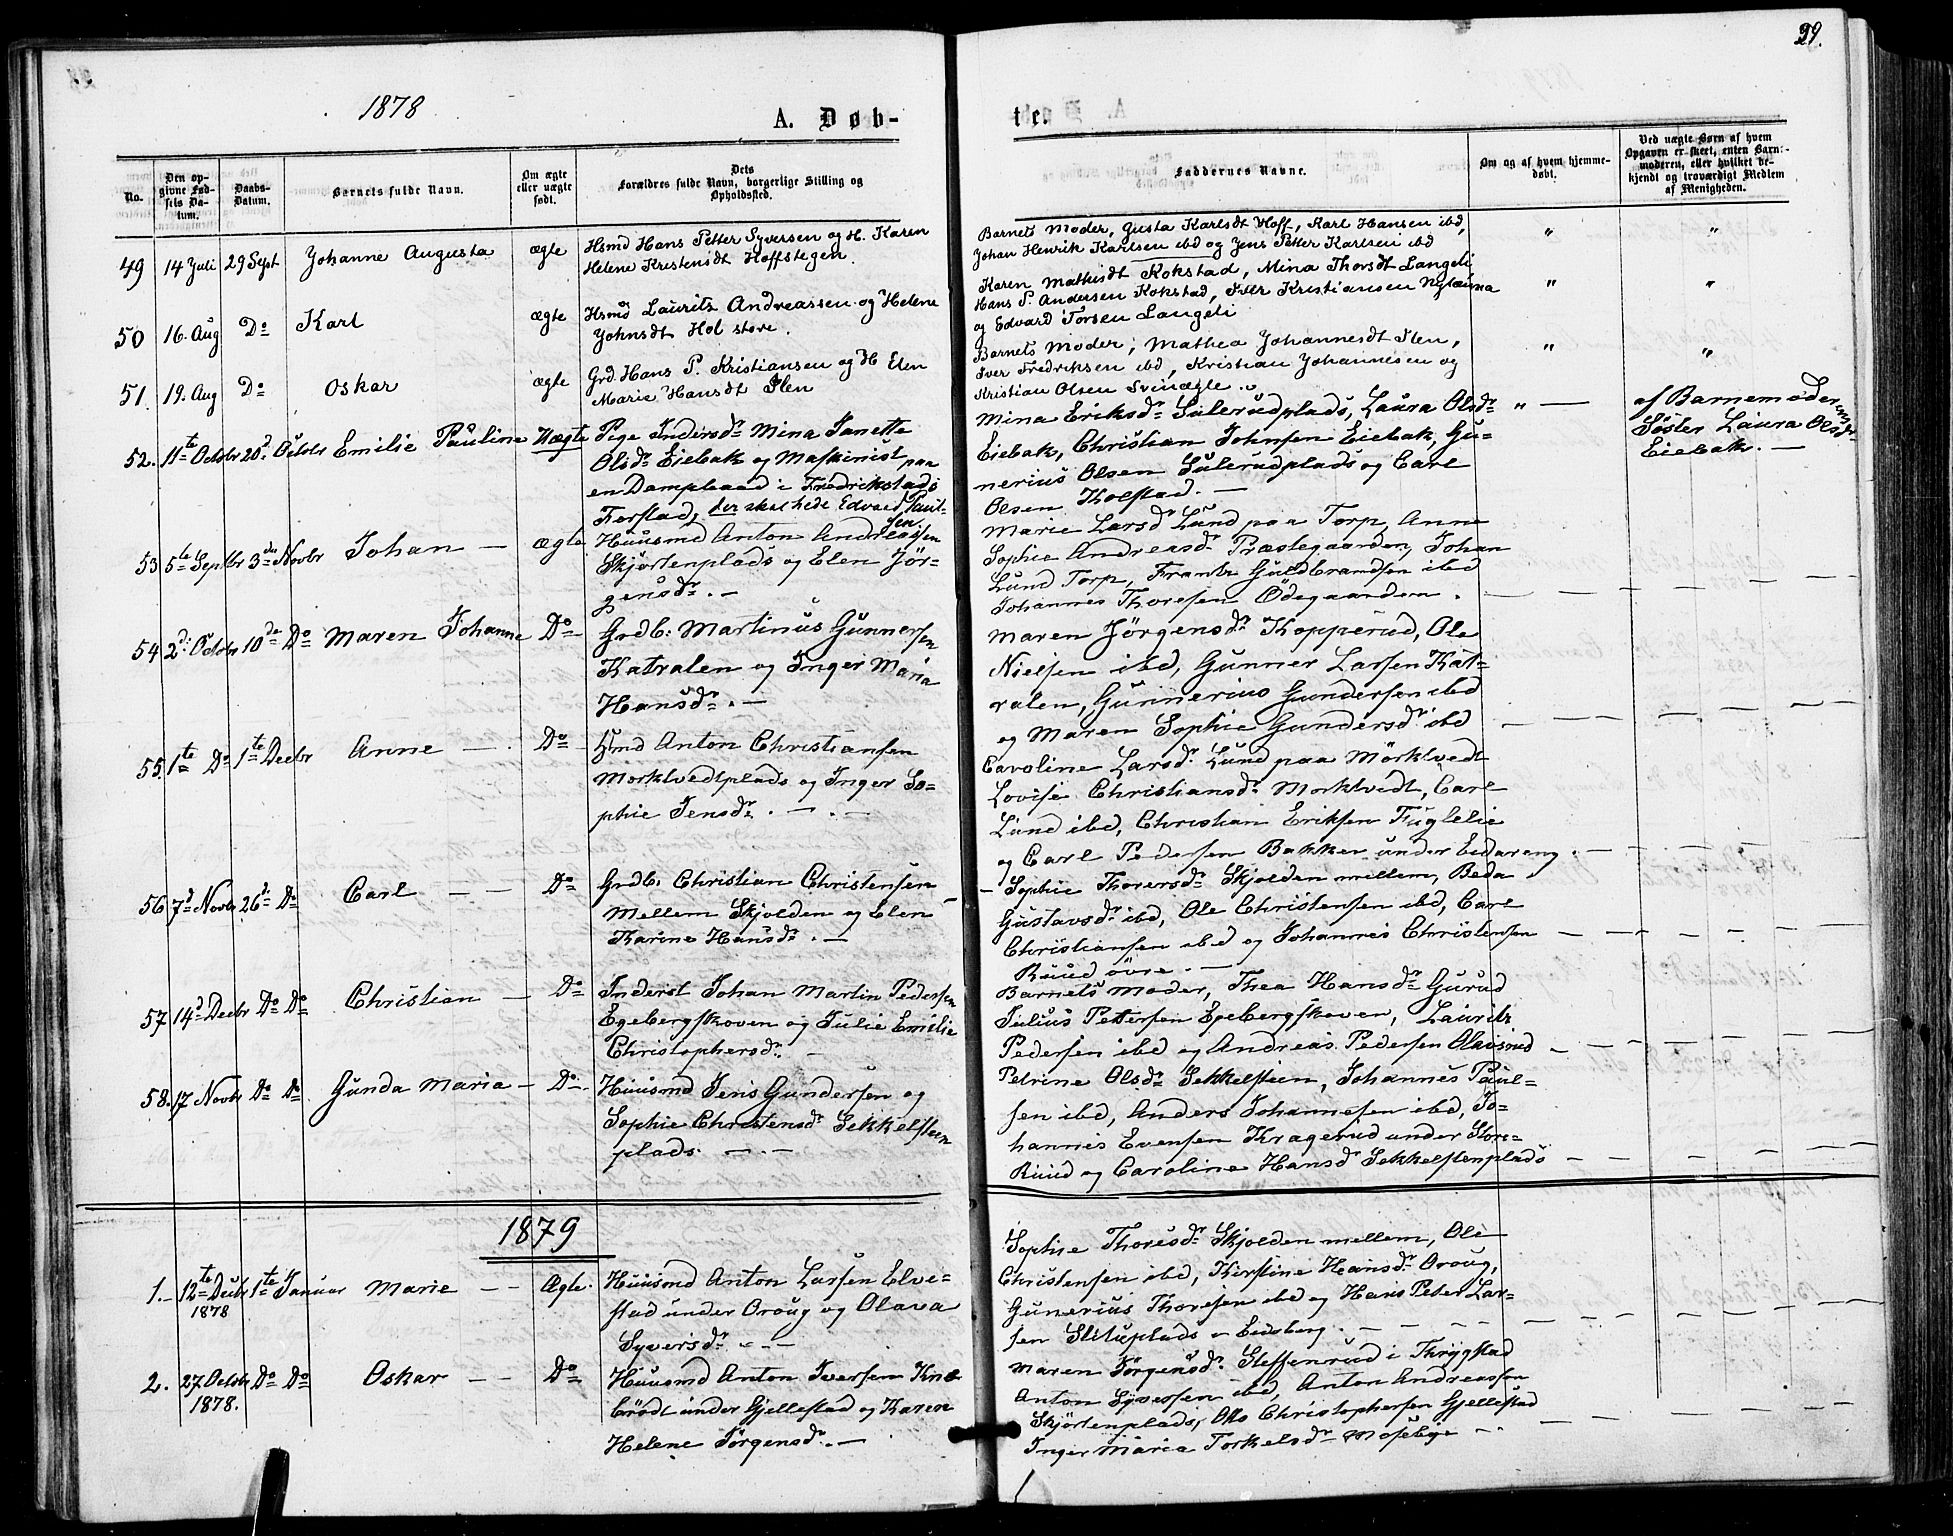 29.
1878
A. Døb-
te.
No.
Den op-
givne Fød-
sels Da-
tum.
Daabs-
Datum.
Barnets fulde Navn.
Om ægte
eller uægte
født.
Dets
Forældres fulde Navn, borgerlige Stilling og
Opholdssted.
Faddernes Navne.
Om og af hvem hjemme-
døbt.
Ved uægte Børn af hvem
Opgaven er skeet, enten Barne-
moderen, eller hvilket be-
kjendt og troværdigt Medlem
af Menigheden.
49 14 Juli 29 Sept Johanne Augusta ægte
Hsmd Hans Petter Syversen og H. Karen
Helene Kristensdt Hoffstegen.
Barnets Moder, Gusta Karlsdt Hoff, Karl Hansen ibd,
Johan Henrik Karlsen ibd og Jens Petter Karlsen ibd
" "
50 16. Aug Do Karl ægte
Hsmd Laurits Andreassen og Helene
Johnsdt Hol store.
Karen Mathisdt Kokstad, Mina Thorsdt Langeli
Hans P. Andersen Kokstad, Petter Kristiansen
og Edvard Torsen Langeli
" "
51. 19. Aug Do Oskar ægte
Grd. Hans P. Kristiansen og H Elen
Marie Hansdt Slen
Barnets Moder, Mathea Johannesdt Slen,
Iver Fredriksen ibd, Kristian Johannesen og
Kristian Olsen Svinægle.
" "
52. 11te Octobr 20d Octobr Emilie Pauline Uægte
Pige Indersdr Mina Janette
Olsdr Eiebak og Maskinist paa
en Dampbaad i Fredrikstads
Forstad, der skal hede Edvard Paul-
sen.
Mina Eriksdr Sulerudplads, Laura Olsdr
Eiebak, Christian Johnsen Eiebak, Gu-
nerius Olsen Sulerudplads og Carl
Olsen Kolstad. —
" —
af Barnemoderens
Søster Laura Olsdr
Eiebak. —
53 5te Septbr 3die Novbr Johan — ægte
Huusmd Anton Andreassen
Skjørtenplads og Elen Jør-
gensdr. —
Marie Larsdr Lund paa Torp, Anne
Sophie Andreasdr Præstegaarden, Johan
Lund Torp, Frantz Guldbrandsen ibd
Johannes Thoresen Ødegaarden.
54 2d Octobr 10de Do Maren Johanne Do
Grdb. Martinus Gunnersen
Katralen og Inger Maria
Hansdr. —
Maren Jørgensdr Kopperud, Ole
Nielsen ibd, Gunner Larsen Kat-
ralen, Gunnerius Gundersen ibd
og Maren Sophie Gundersdr ibd
55 1te Do 1te Decbr Anne — Do
Hmd Anton Christiansen
Morktvedtplads og Inger So-
phie Jensdr. —
Caroline Larsdr Lund paa Mörktvedt
Lovise Christiansdr Morktvedt, Carl
Lund ibd, Christian Eriksen Fuglelie
og Carl Pedersen Bakken under Eidareng.
56 7d Novbr 26d Do Carl — — Do
Grdb. Christian Christensen
Mellem Skjolden og Elen
Karine Hansdr. —
Sophie Thorersdr Skjolden mellem, Beda
Gustavsdr ibd, Ole Christensen ibd, Carl
Christiansen ibd og Johannes Christensen
Ruud övre. —
57 14d Decbr Do Do Christian — Do
Inderst Johan Martin Pedersen
Egebergskoven og Julie Emilie
Christophersdr. —
Barnets Moder, Thea Hansdr Gurud
Julius Pettersen Egebergskoven, Lauritz
Pedersen ibd og Andreas Pedersen
58. 17 Novbr Do Do Gunda Maria — Do
Huusmd Jens Gundersen og
Sophie Christensdr Sekkelsteen
plads. —
Petrine Olsdr Sekkelsteen, Johannes Paul-
sen ibd, Anders Johannesen ibd, Jo-
hannes Evensen Kragerud under Store-
Ruud og Caroline Hansdr Sekkelstenplads
1879
1. 12te Decbr 1878 1te Januar Marie — — Ægte.
Huusmd Anton Larsen Elve-
stad under Oroug og Olava
Syversdr. —
Sophie Thoresdr Skjolden mellem, Ole
Christensen ibd, Kirstine Hansdr Oroug,
Gunerius Thoresen ibd og Hans Peter Lar-
sen Slituplads Eidsberg.
2. 27 Octobr 1878. Do Do Oskar — — Do
Huusmd Anton Iversen Knæ-
brödt under Gjellestad og Karen
Helene Jörgensdr. —
Maren Jörgensdr Steffensrud i Thrygstad
Anton Syversen ibd, Anton Andreassen
Skjörtenplads, Otto Christophersen Gjellestad
Inger Maria Torkelsdr Mosebye —